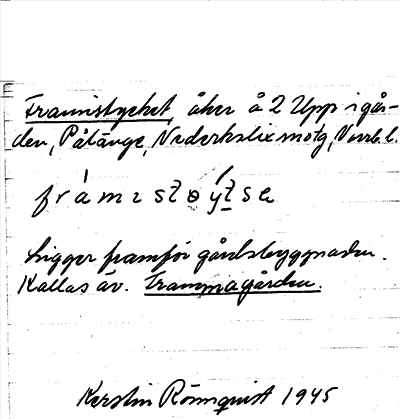 Framistycket, åker å 2 Upp i går-
den, Påläng, Nederkalix sn otg, Norrb. l.
Ligger framför gårdsbyggnaden.
Kallas äv. Frammagården.
Kerstin Rönnquist 1945